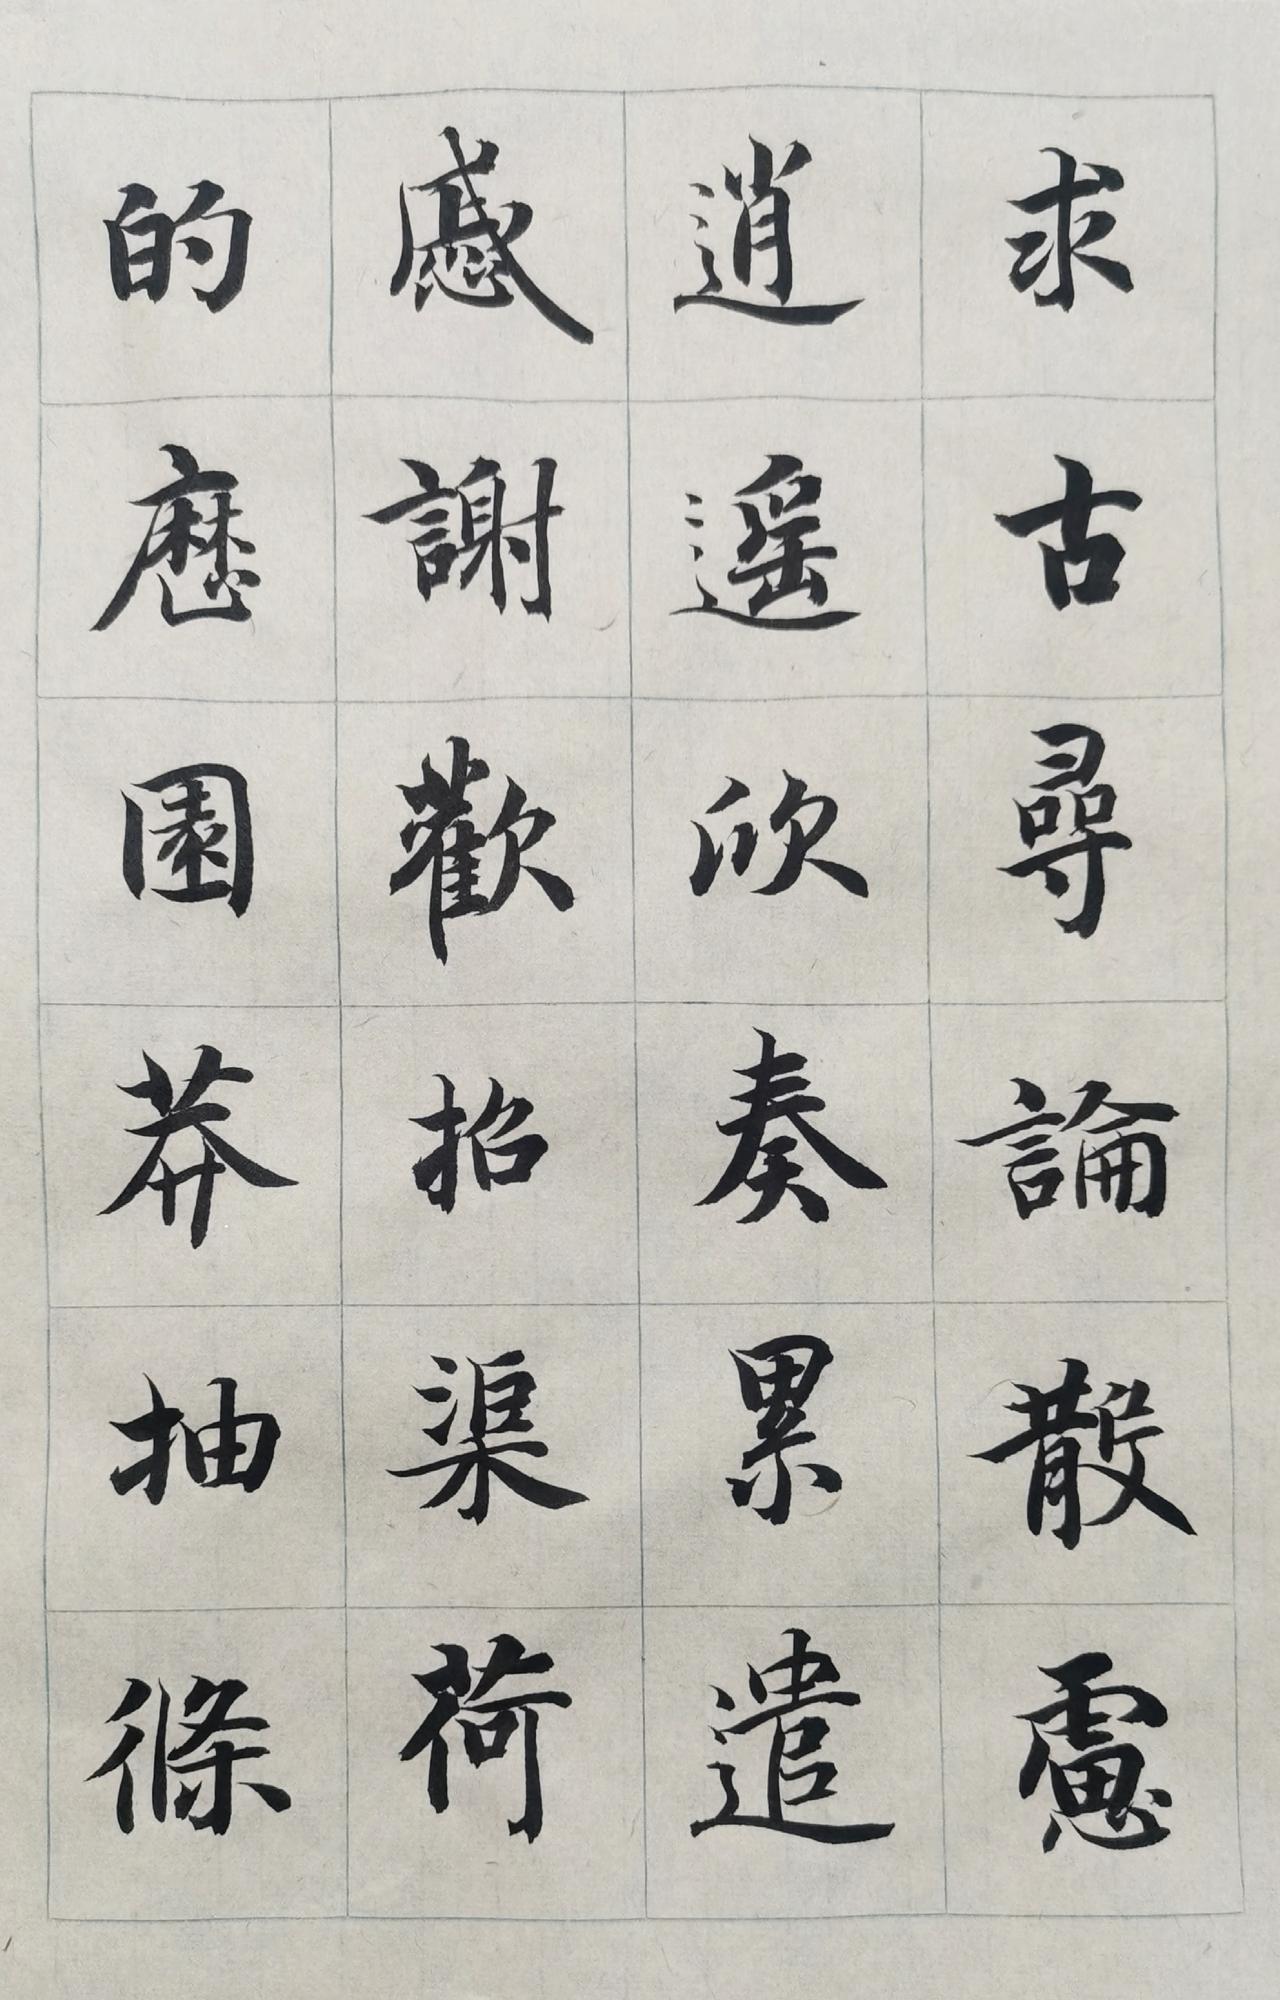 求古尋論散慮
逍遥欣奏累遣
慼謝歡招渠荷
的歷園莽抽條